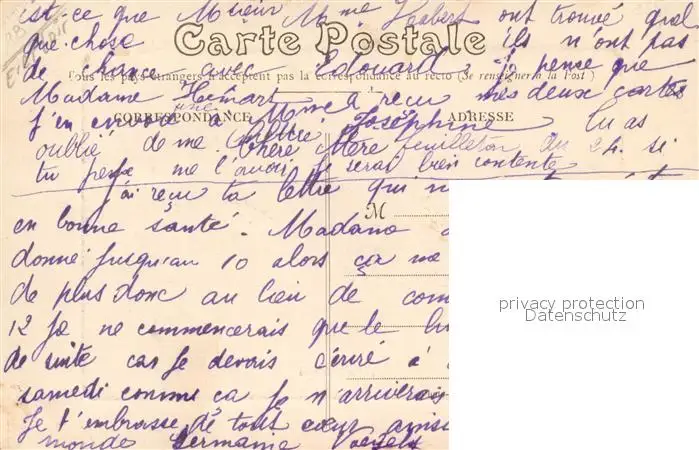 est-ce que Msieur Mme Hebert ont trouvé quel
que chose ils n'ont pas
Carte Postale
de chance avec Edouard. je pense que
Tous les pays étrangers n'acceptent pas la correspondance au recto (Se renseigner à la Poste)
Madame Hemart a reçu mes deux cartes
j'en envoie une à Mme Joséphine Tu as
CORRESPONDANCE
ADRESSE
oublié de me mettre feuilleton du 24. si
tu peux me l'avoir je serai bien contente
Chère Mère
j'ai reçu ta lettre qui
M
en bonne santé. Madame
donne jusqu'au 10 alors ça me
de plus donc au lieu de com
12 je ne commencerais que le lu
de suite car je devais écrire à
samedi comme ça je n'arriverais
Je t'embrasse de tout cœur ainsi
monde Germaine
privacy protection
Datenschutz